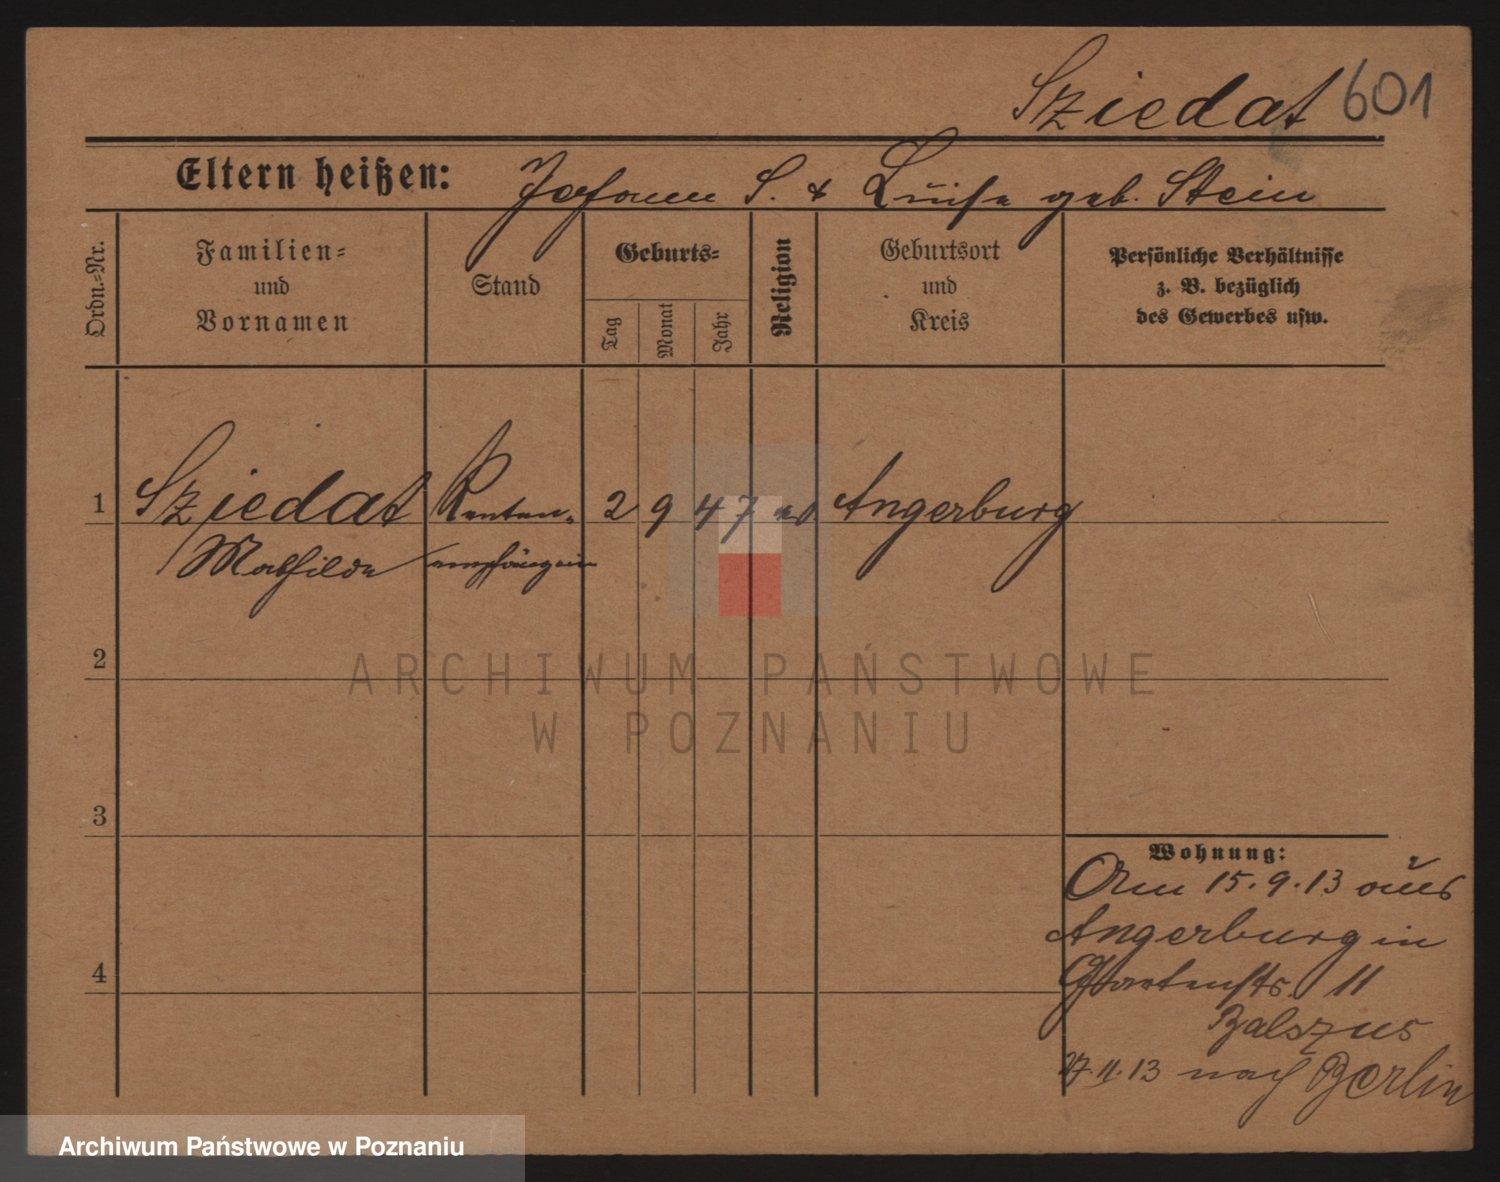 Sziedat 601
Eltern heißen: Johann S. & Luise geb. Stein
Ordn.-Nr.
Familien-
und
Vornamen
Stand
Geburts-
Tag
Monat
Jahr
Religion
Geburtsort
und
Kreis
Persönliche Verhältnisse
z. B. bezüglich
des Gewerbes usw.
1 Sziedat Renten- 2 9 47 ev. Angerburg
Mathilde empfängerin
2
3
4
Wohnung:
Am 15.9.13 aus
Angerburg in
Gartenstr. 11
Balszus
17.11.13 nach Berlin
ARCHIWUM PAŃSTWOWE
W POZNANIU
Archiwum Państwowe w Poznaniu